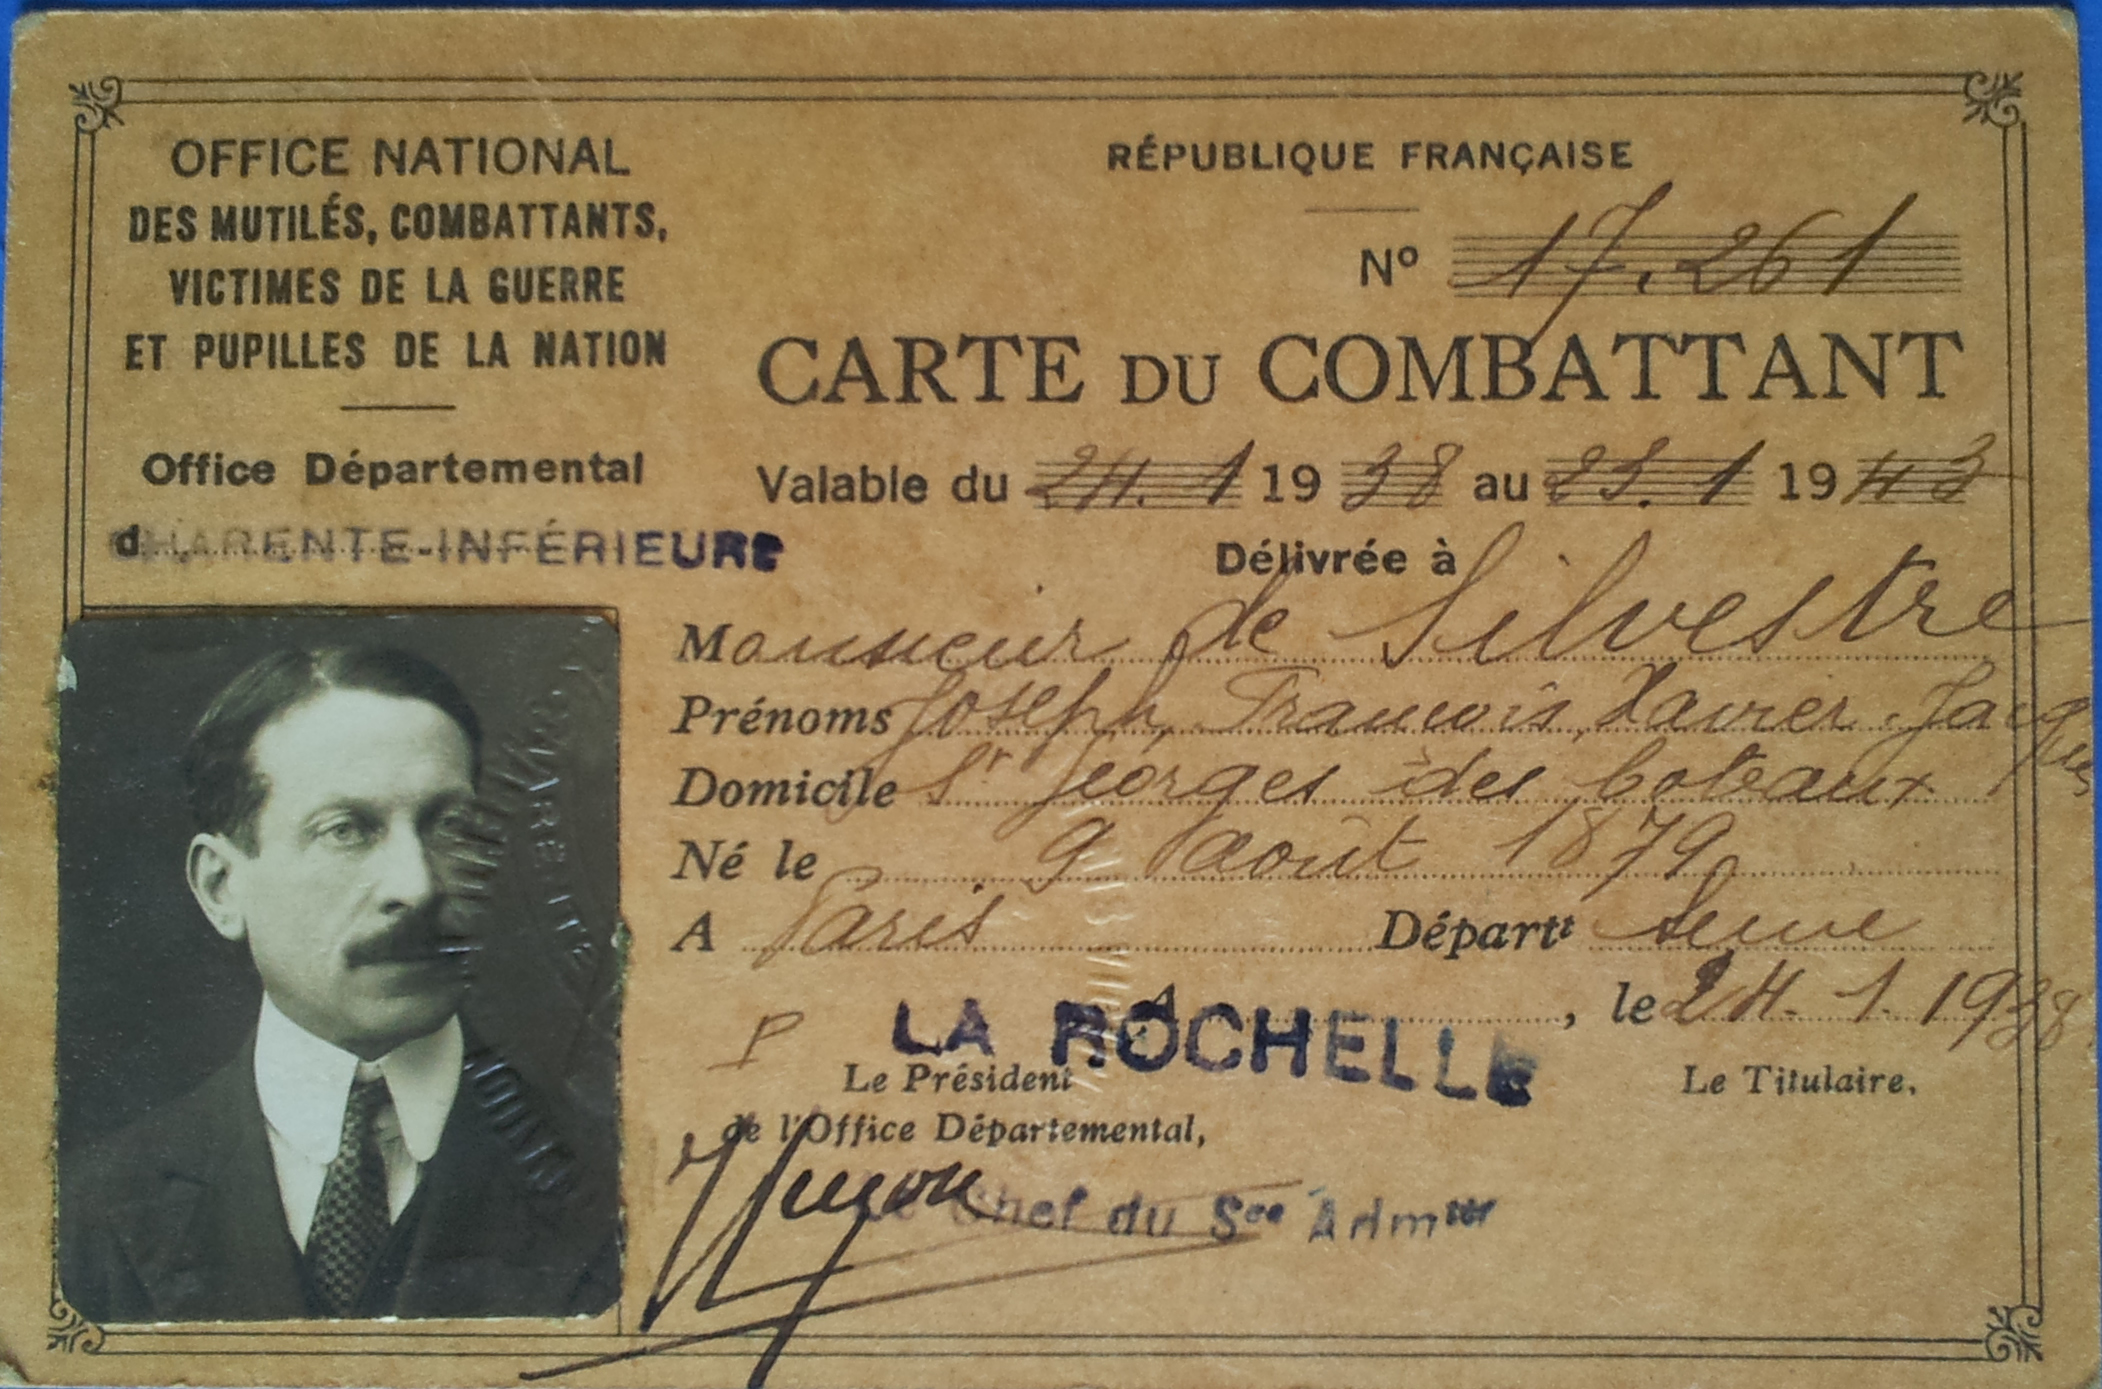 OFFICE NATIONAL
DES MUTILÉS, COMBATTANTS,
VICTIMES DE LA GUERRE
ET PUPILLES DE LA NATION
Office Départemental
d CHARENTE-INFÉRIEURE
RÉPUBLIQUE FRANÇAISE
Nº 17.261
CARTE DU COMBATTANT
Valable du 24.1 1938 au 23.1 1943
Délivrée à
Monsieur de Silvestre
Prénoms Joseph, François, Xavier Jacques
Domicile St Georges des Coteaux
Né le 9 août 1879
A Paris Départt Seine
A LA ROCHELLE, le 24.1.1938
P
Le Président
de l'Office Départemental,
Le Titulaire.
Le Chef du Sce Admtif